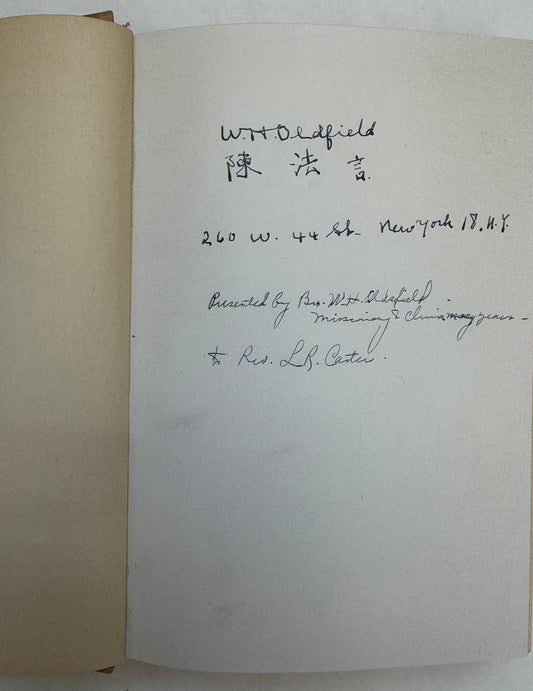 W.H.Oldfield
陳 法 言
260 W. 44 St. New York 18, N.Y.
Presented by Bro. W.H. Oldsfield -
Missionary to China many years -
to Rev. L.R. Carter.